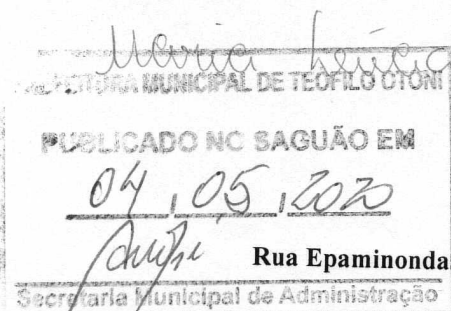 Maria Lúcia
PREFEITURA MUNICIPAL DE TEÓFILO OTONI
PUBLICADO NO SAGUÃO EM
04, 05, 2020
Rua Epaminonda
Secretaria Municipal de Administração